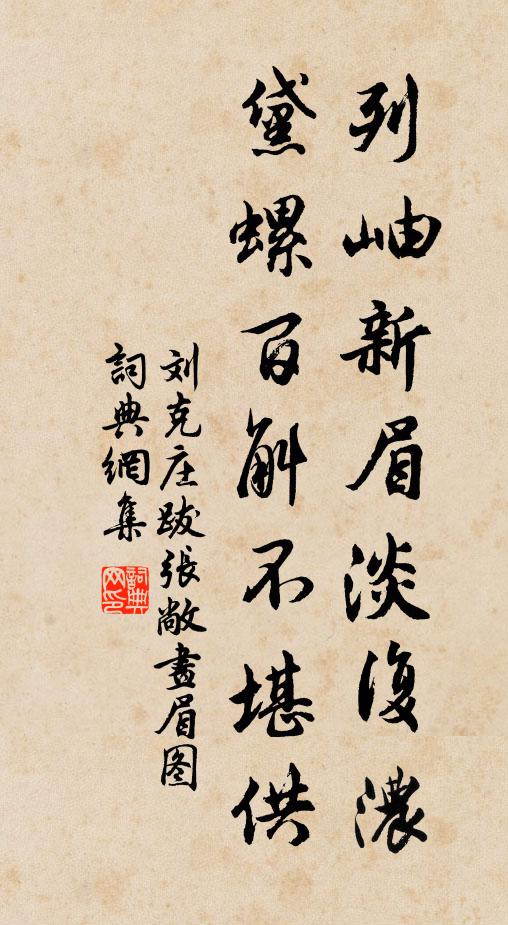 列岫新眉淡復濃
黛螺百斛不堪供
刘克庄跋張敞畫眉图
詞典網集
詞典
网印